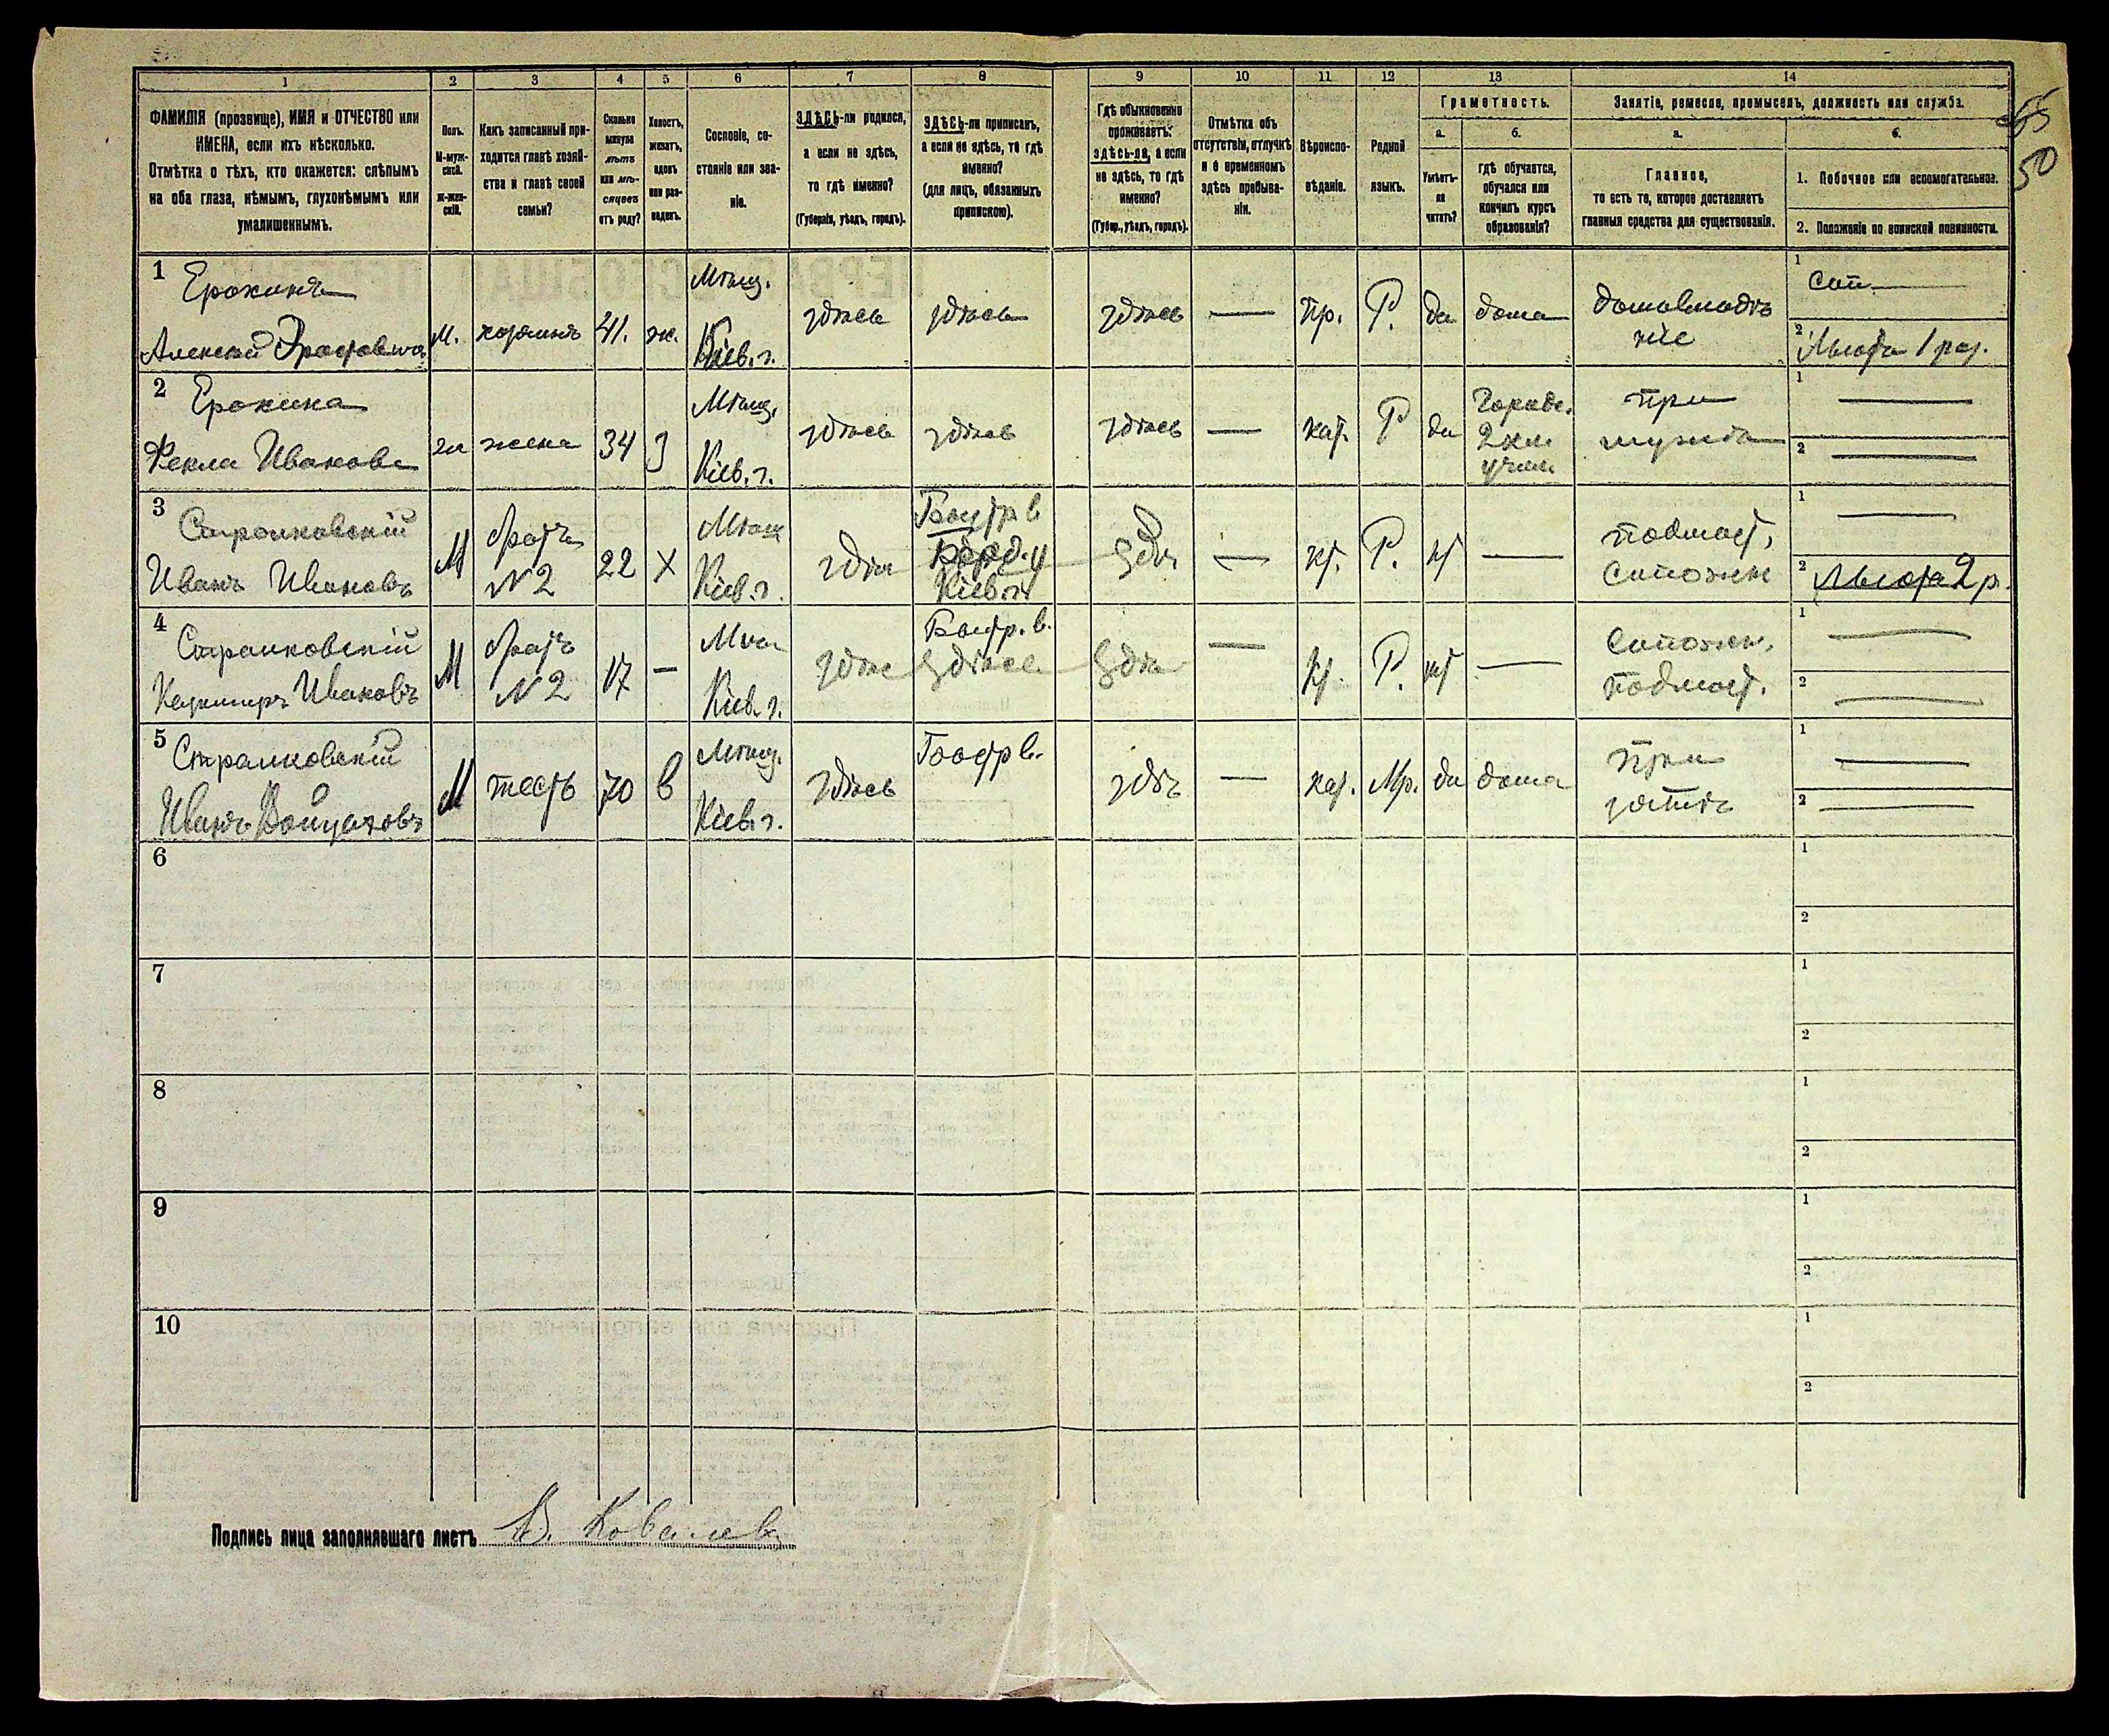 1 2 3 4 5 6 7 8 9 10 11 12 13 14
ФАМИЛІЯ (прозвище), ИМЯ и ОТЧЕСТВО или
ИМЕНА, если ихъ нѣсколько.
Отмѣтка о тѣхъ, кто окажется: слѣпымъ
на оба глаза, нѣмымъ, глухонѣмымъ или
умалишеннымъ.
Полъ.
М-муж-
ской.
ж-жен-
скій.
Какъ записанный при-
ходится главѣ хозяй-
ства и главѣ своей
семьи?
Сколько
минуло
лѣтъ
или мѣ-
сяцевъ
отъ роду?
Холостъ,
женатъ,
вдовъ
или раз-
веденъ.
Сословіе, со-
стояніе или зва-
ніе.
ЗДѢСЬ-ли родился,
а если не здѣсь,
то гдѣ именно?
(Губернія, уѣздъ, городъ).
ЗДѢСЬ-ли приписанъ,
а если не здѣсь, то гдѣ
именно?
(для лицъ, обязанныхъ
припискою).
Гдѣ обыкновенно
проживаетъ:
здѣсь-ли, а если
не здѣсь, то гдѣ
именно?
(Губер., уѣздъ, городъ).
Отмѣтка объ
отсутствіи, отлучкѣ
и о временномъ
здѣсь пребыва-
ніи.
Вѣроиспо-
вѣданіе.
Родной
языкъ.
Грамотность.
а.
Умѣетъ-
ли
читать?
б.
гдѣ обучается,
обучался или
кончилъ курсъ
образованія?
Занятіе, ремесло, промыселъ, должность или служба.
а.
Главное,
то есть то, которое доставляетъ
главныя средства для существованія.
б.
1. Побочное или вспомогательное.
2. Положеніе по воинской повинности.
55
50
1 Ерохинъ
Алексѣй
М. хозяинъ 41. ж.
Мѣщ.
Кіев. г.
здѣсь здѣсь здѣсь — пр. Р. да дома
домовладѣ
ніе
1 Сап.
2 Льгота 1 раз.
2 Ерохина
Фекла Иванова
ж жена 34 з
Мѣщ.
Кіев. г.
здѣсь здѣсь здѣсь — кат. Р да
Городс.
2 кл.
учил.
при
мужѣ
1 —
2 —
3 Стралковскій
Иванъ Ивановъ
М братъ
N 2
22 х
Мѣщ
Кіев. г.
здѣс
Кіев. г.
здѣс — кт. Р. нт —
подмаст.
сапожн
1 —
2 Льгота 2 р.
4 Стралковскій
Казимиръ Ивановъ
М братъ
N 2
17 —
Мѣщ
Кіев. г.
здѣс здѣсь здѣс — кт. Р. нт —
сапожн.
подмаст.
1 —
2 —
5 Стралковскій
Иванъ
М тесть 70 в
Мѣщ.
Кіев. г.
здѣсь здѣс — кат. Мр. да дома
при
зятѣ
1 —
2 —
6 1
2
7 1
2
8 1
2
9 1
2
10 1
2
Подпись лица заполнявшаго листъ В. Ковалев